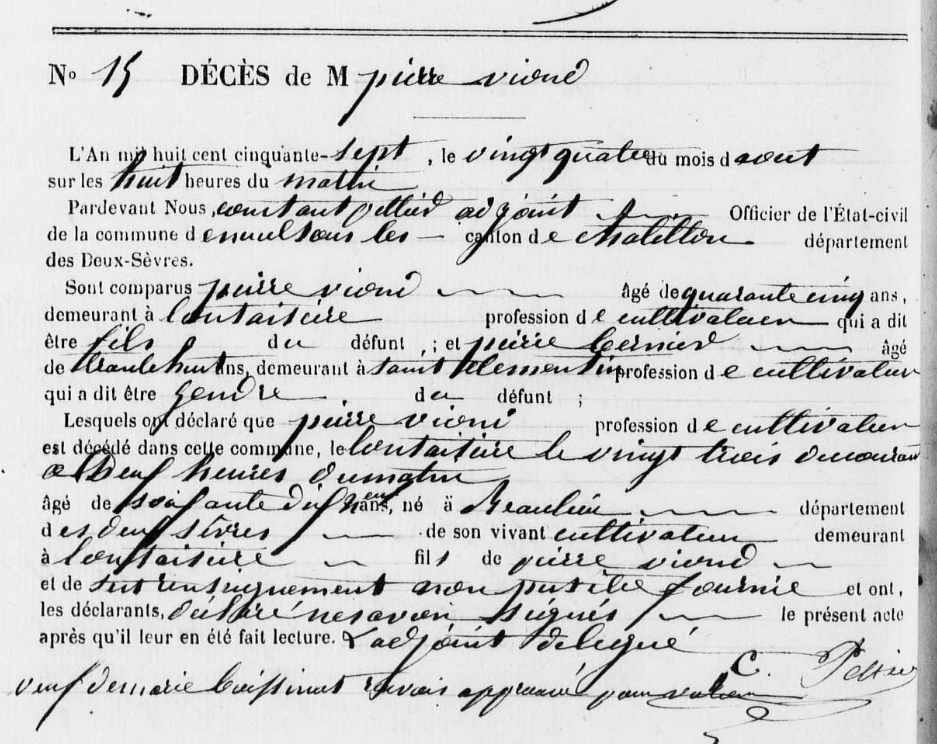 No 15 DÉCÈS de M pierre viond
L'An mil huit cent cinquante-sept, le vingt quatre du mois d aout
sur les huit heures du matin
Pardevant Nous, constant adjoint Officier de l'État-civil
de la commune d sous les canton d e chatillon département
des Deux-Sèvres.
Sont comparus pierre viond âgé de quarante cinq ans,
demeurant à profession d e cultivateur qui a dit
être fils du défunt, ; et pierre âgé
de ans, demeurant à saint clementin profession d e cultivateur
qui a dit être gendre du défunt ;
Lesquels ont déclaré que pierre viond profession d e cultivateur
est décédé dans cette commune, le le vingt trois du courant
a neuf heures du matin
âgé de soixante ans, né à Beaulieu département
d es deux sèvres de son vivant cultivateur demeurant
à fils de pierre viond
et de fournie et ont,
les déclarants, déclaré ne savoir signer le présent acte
après qu'il leur en été fait lecture. L adjoint delegué
C. Pellier
veuf de marie approuvé pour